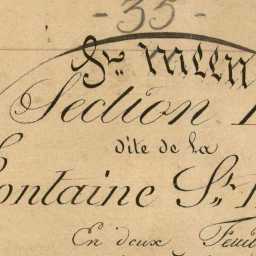 - 35 -
Section
dite de la
ontaine St.
En deux Feuil